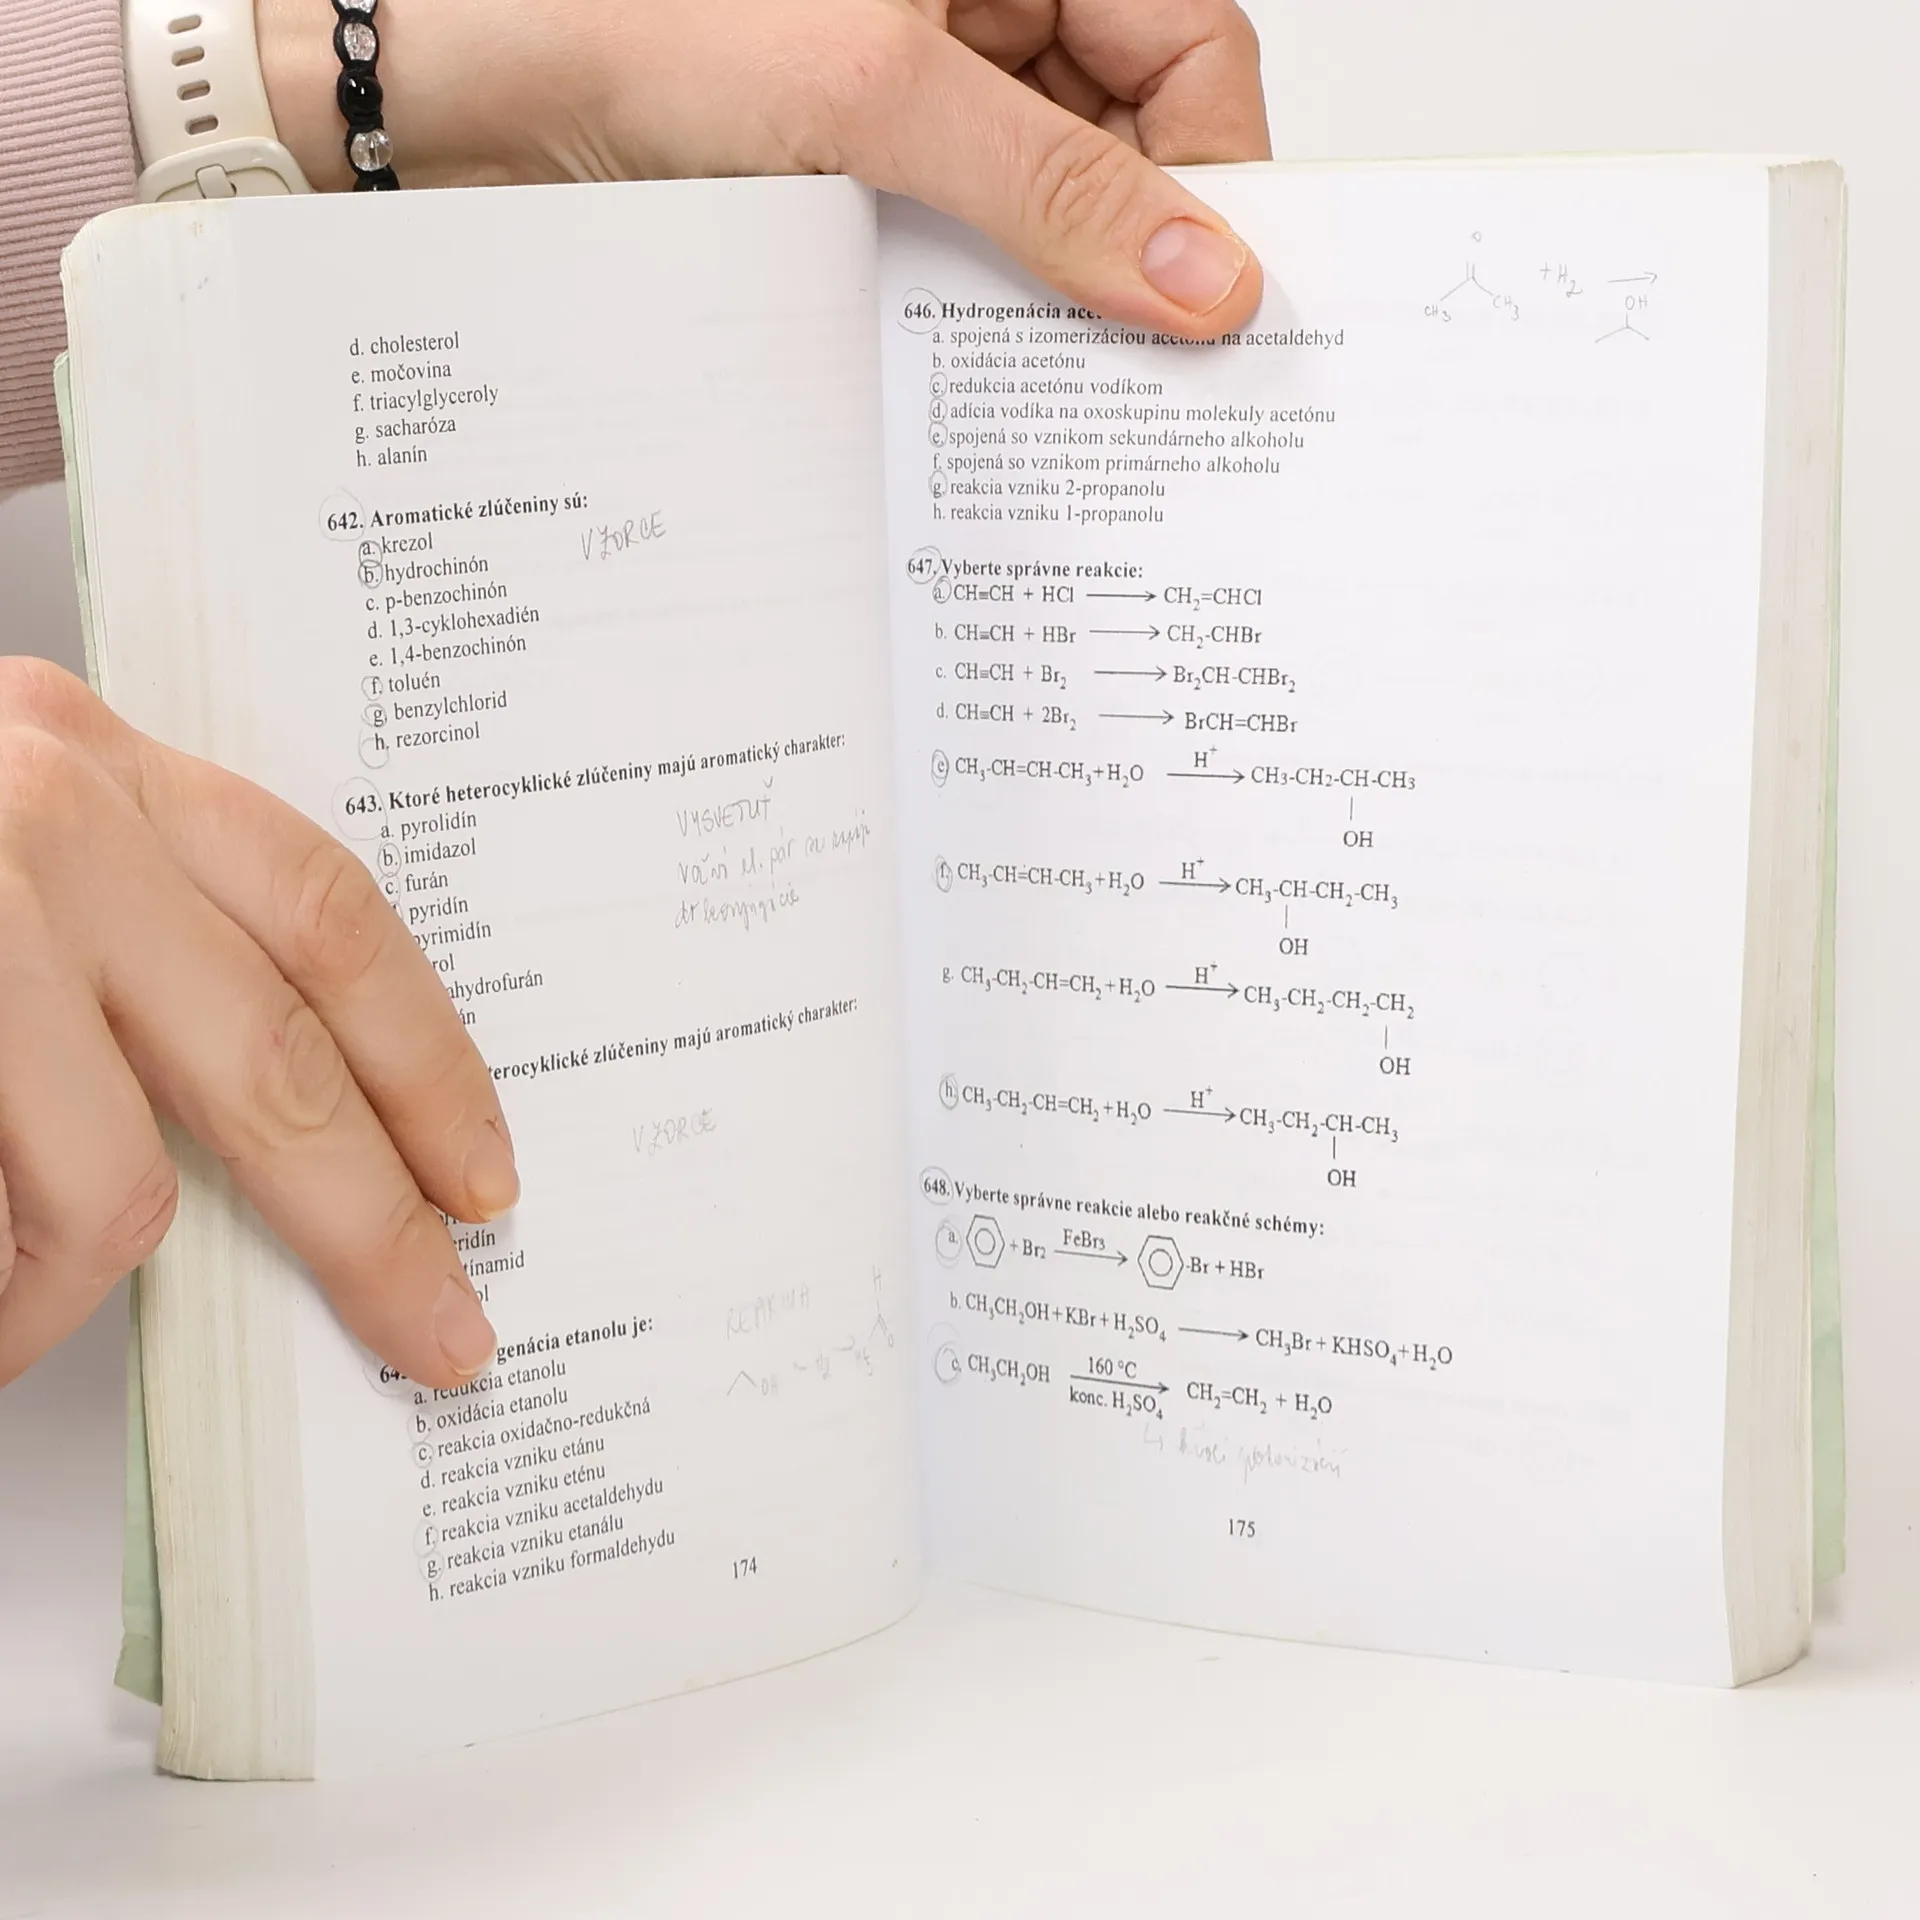 d. cholesterol
e. močovina
f. triacylglyceroly
g. sacharóza
h. alanín
642. Aromatické zlúčeniny sú:
a. krezol
VZORCE
b. hydrochinón
c. p-benzochinón
d. 1,3-cyklohexadién
e. 1,4-benzochinón
f. toluén
g. benzylchlorid
h. rezorcinol
643. Ktoré heterocyklické zlúčeniny majú aromatický charakter:
a. pyrolidín
VYSVETLIŤ
b. imidazol
c. furán
pyridín
yrimidín
rol
ahydrofurán
án
terocyklické zlúčeniny majú aromatický charakter:
VZORCE
ridín
tínamid
ol
genácia etanolu je:
a. redukcia etanolu
b. oxidácia etanolu
c. reakcia oxidačno-redukčná
d. reakcia vzniku etánu
e. reakcia vzniku eténu
f. reakcia vzniku acetaldehydu
g. reakcia vzniku etanálu
h. reakcia vzniku formaldehydu
REAKCIA
H
OH
O
174
O
CH3 CH3 + H2 →
OH
646. Hydrogenácia
a. spojená s izomerizáciou na acetaldehyd
b. oxidácia acetónu
c. redukcia acetónu vodíkom
d. adícia vodíka na oxoskupinu molekuly acetónu
e. spojená so vznikom sekundárneho alkoholu
f. spojená so vznikom primárneho alkoholu
g. reakcia vzniku 2-propanolu
h. reakcia vzniku 1-propanolu
647. Vyberte správne reakcie:
a. CH≡CH + HCl → CH₂=CHCl
b. CH≡CH + HBr → CH₂-CHBr
c. CH≡CH + Br₂ → Br₂CH-CHBr₂
d. CH≡CH + 2Br₂ → BrCH=CHBr
H⁺
e. CH₃-CH=CH-CH₃+H₂O → CH3-CH2-CH-CH3
OH
H⁺
f. CH₃-CH=CH-CH₃+H₂O → CH₃-CH-CH₂-CH₃
OH
H⁺
g. CH₃-CH₂-CH=CH₂+H₂O → CH₃-CH₂-CH₂-CH₂
OH
H⁺
h. CH₃-CH₂-CH=CH₂+H₂O → CH₃-CH₂-CH-CH₃
OH
648. Vyberte správne reakcie alebo reakčné schémy:
FeBr3
a. + Br2 → -Br + HBr
b. CH₃CH₂OH+KBr+H₂SO₄ → CH₃Br+KHSO₄+H₂O
160 °C
c. CH₃CH₂OH → CH₂=CH₂ + H₂O
konc. H₂SO₄
175